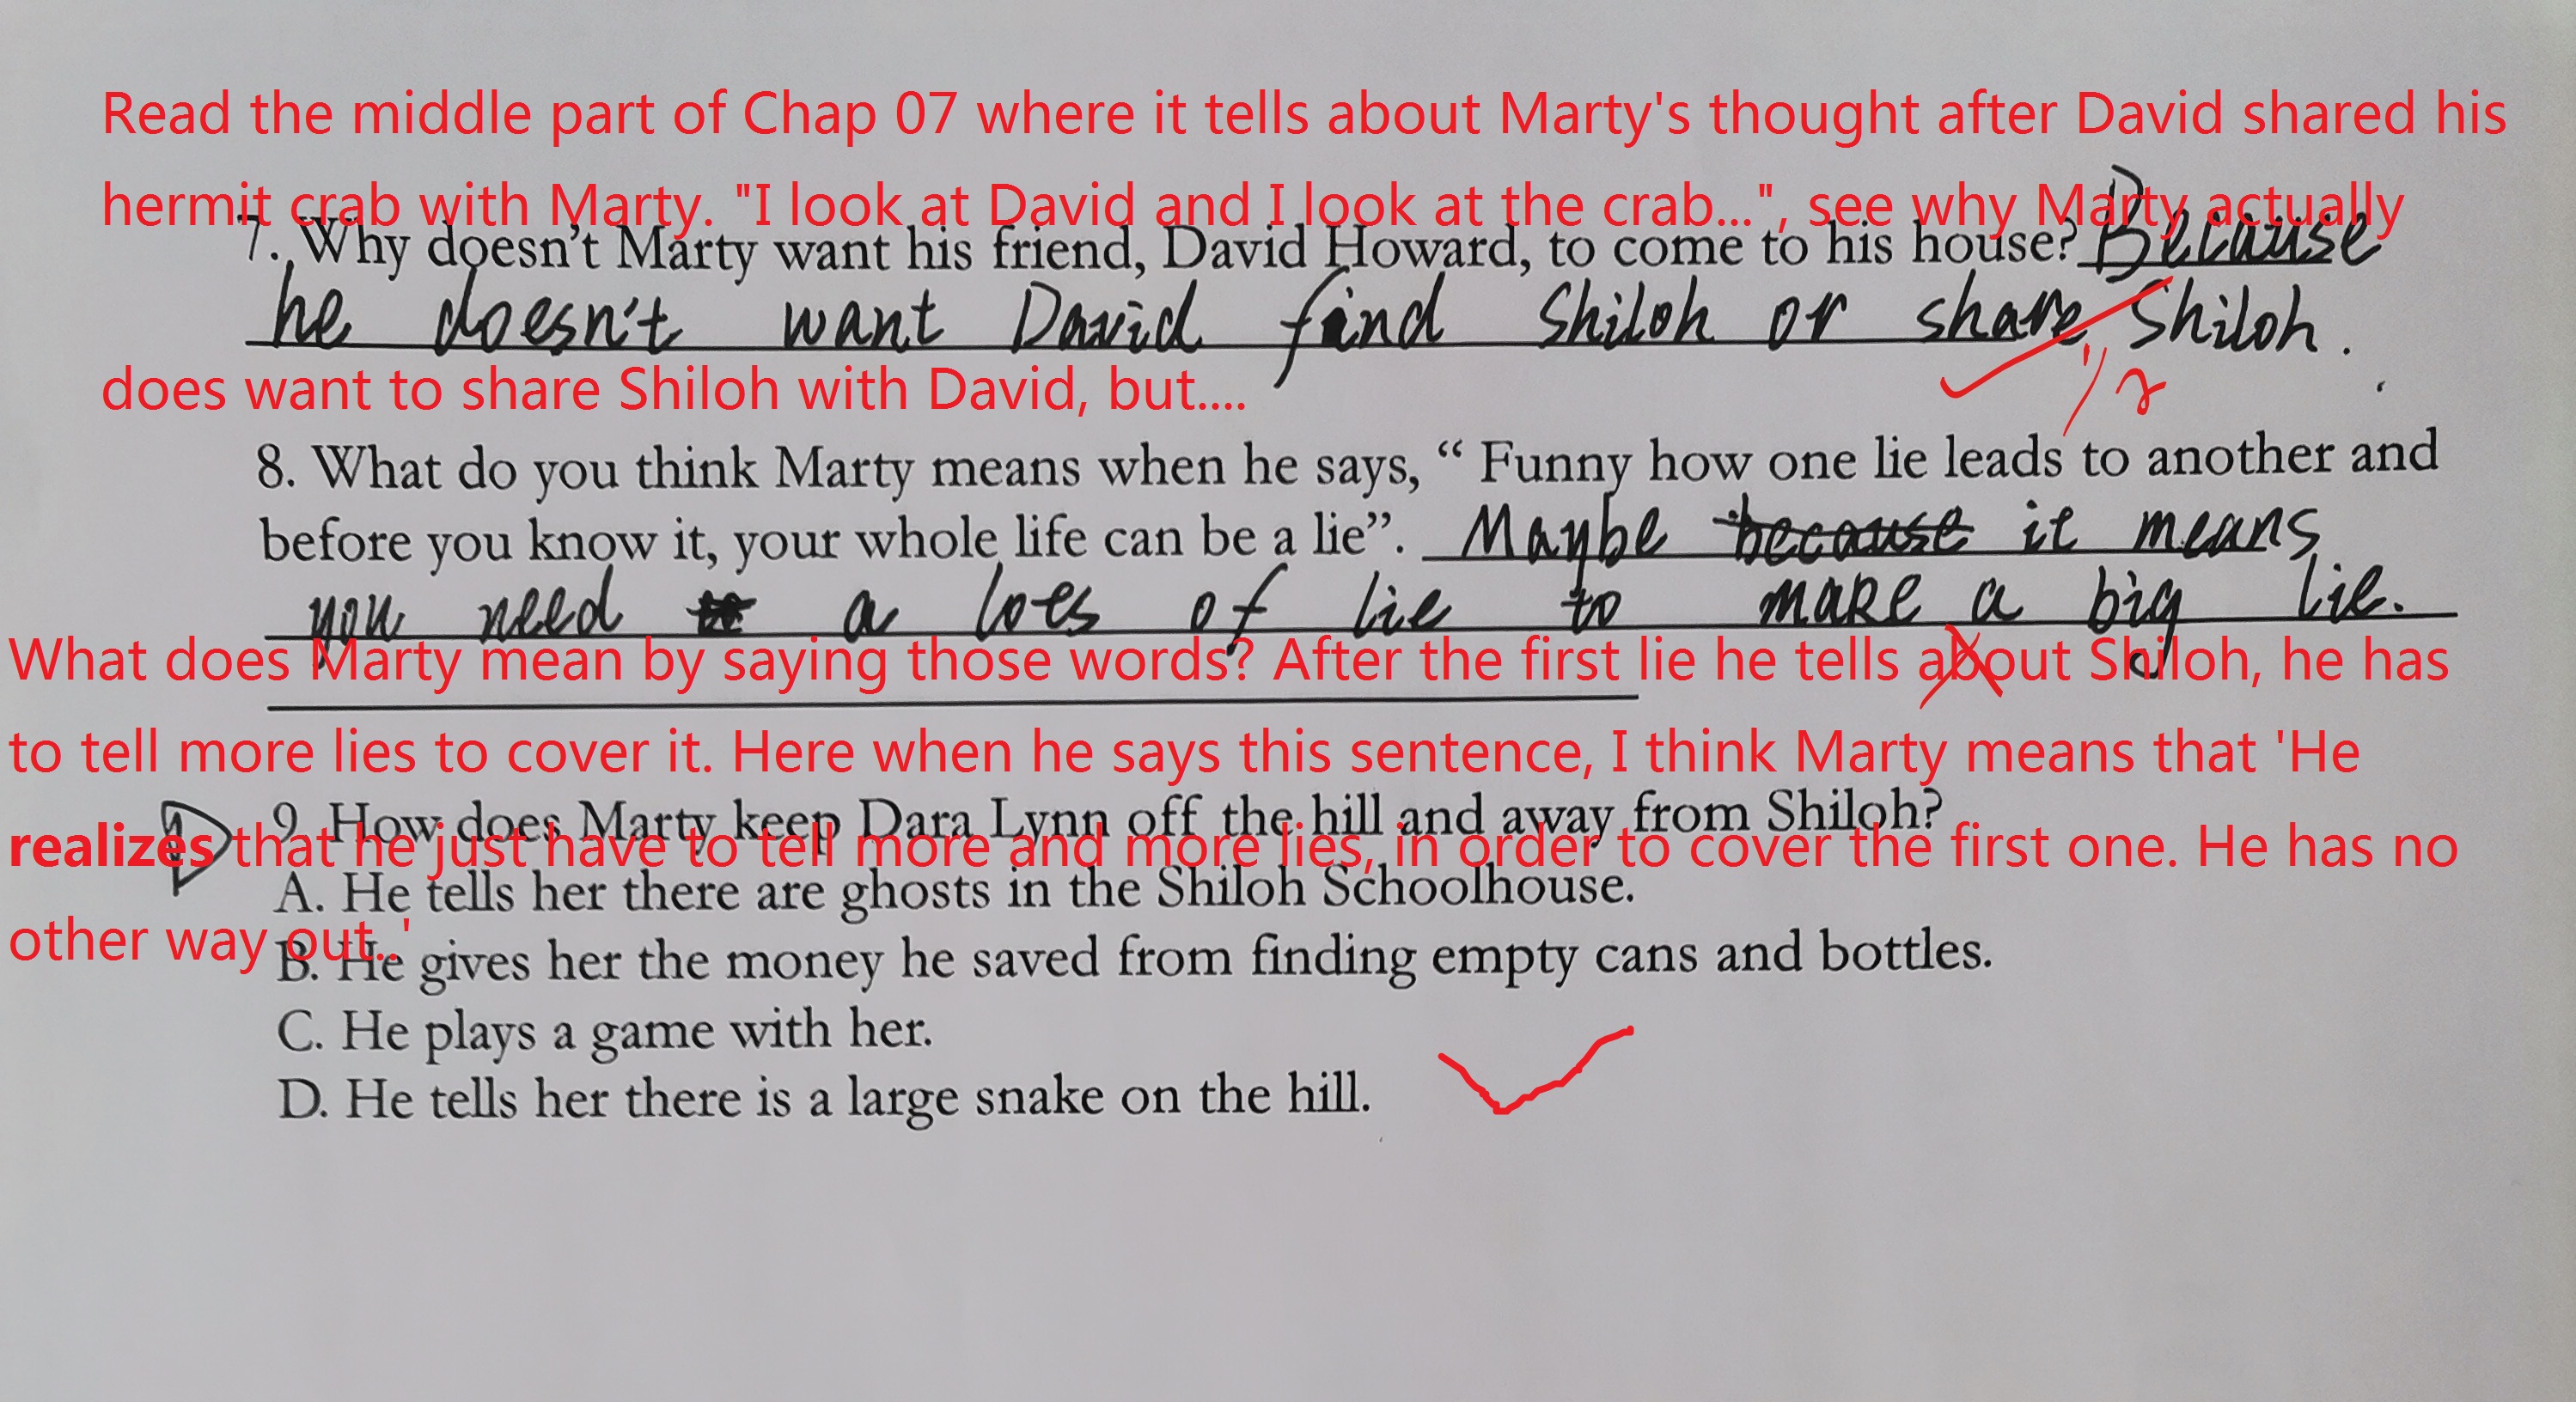 Read the middle part of Chap 07 where it tells about Marty's thought after David shared his
hermit crab with Marty. "I look at David and I look at the crab...", see why Marty actually
7. Why doesn't Marty want his friend, David Howard, to come to his house? Because
he doesn't want David find Shiloh or share Shiloh.
1/2
does want to share Shiloh with David, but....
8. What do you think Marty means when he says, “ Funny how one lie leads to another and
before you know it, your whole life can be a lie”. Maybe because it means
you need a lots of lie to make a big lie.
What does Marty mean by saying those words? After the first lie he tells about Shiloh, he has
to tell more lies to cover it. Here when he says this sentence, I think Marty means that 'He
D 9. How does Marty keep Dara Lynn off the hill and away from Shiloh?
realizes that he just have to tell more and more lies, in order to cover the first one. He has no
A. He tells her there are ghosts in the Shiloh Schoolhouse.
other way out..'
B. He gives her the money he saved from finding empty cans and bottles.
C. He plays a game with her.
D. He tells her there is a large snake on the hill.